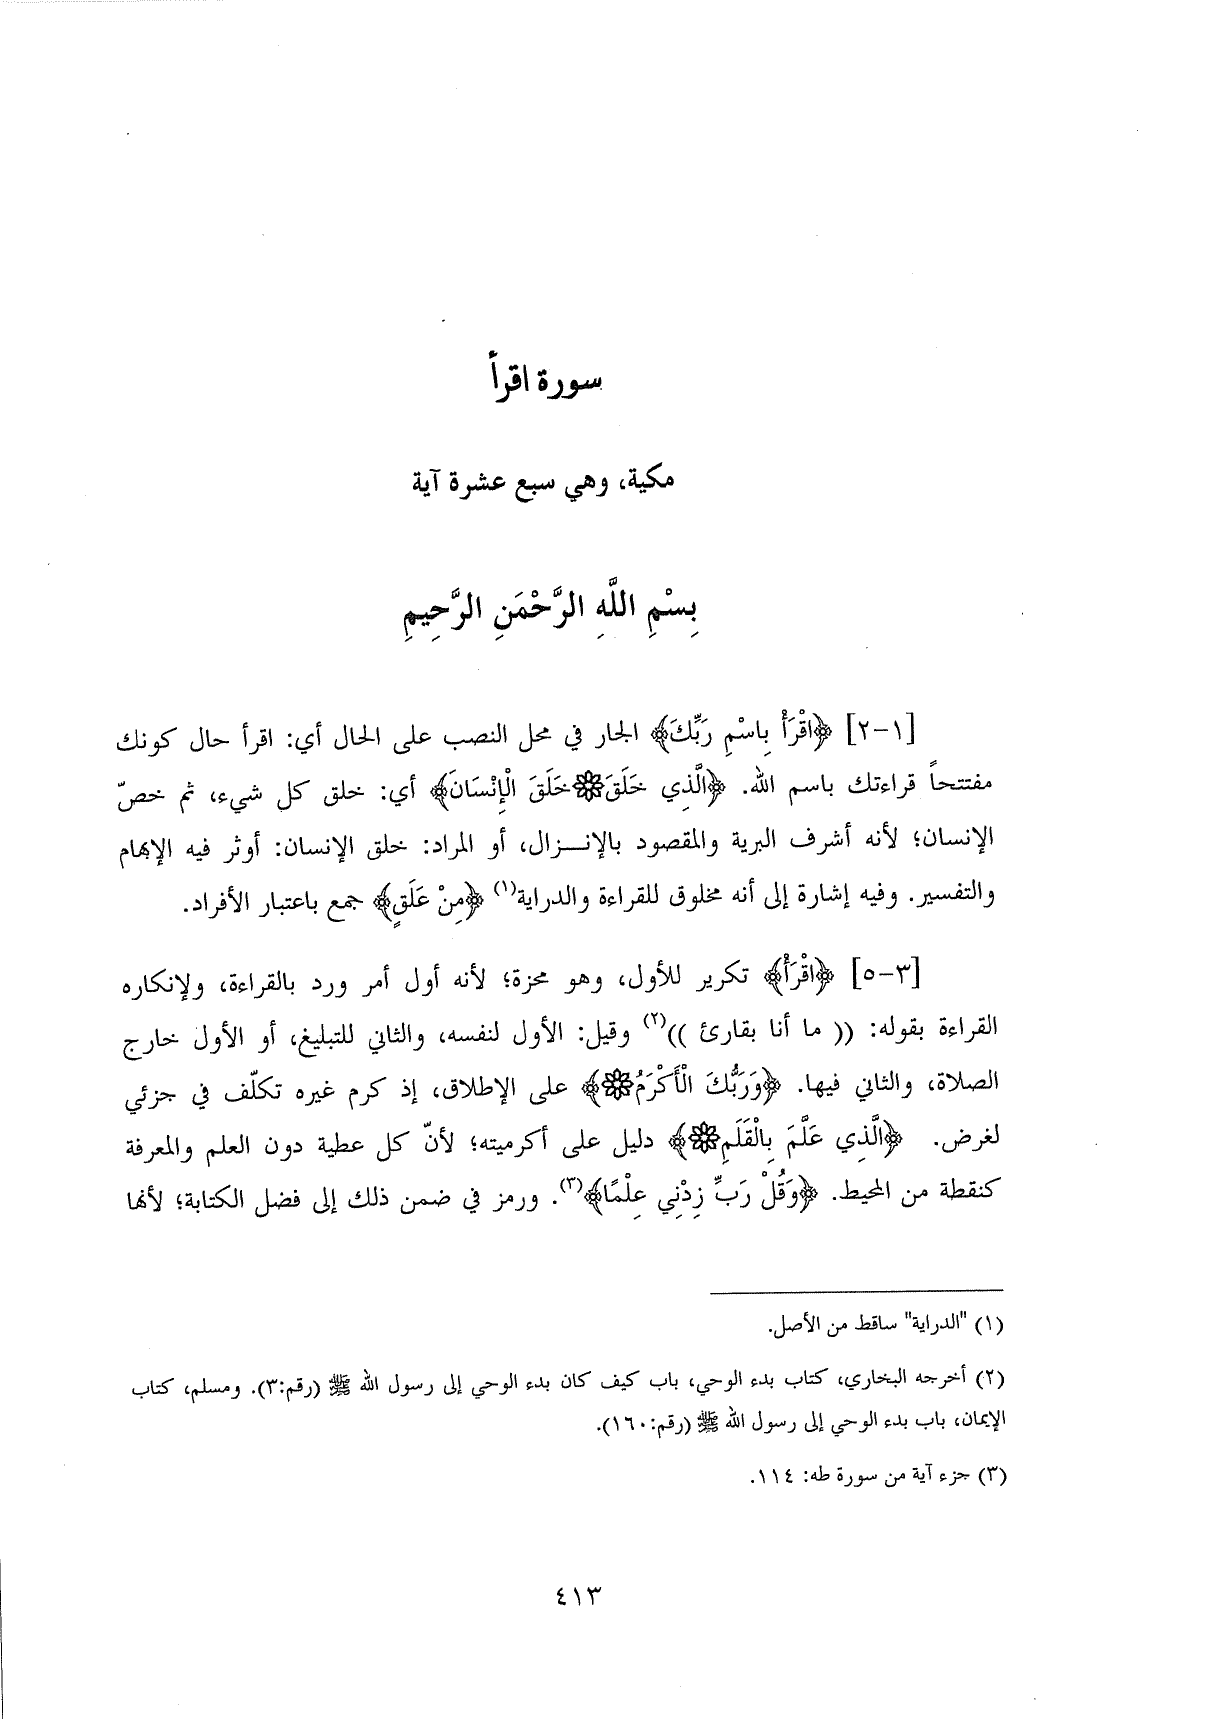 سورة اقرأ
مكية، وهي سبع عشرة آية
بِسْمِ اللَّهِ الرَّحْمَنِ الرَّحِيمِ
[١-٢] ﴿اقْرَأْ بِاسْمِ رَبِّكَ﴾ الجار في محل النصب على الحال أي: اقرأ حال كونك
مفتتحاً قراءتك باسم الله. ﴿الَّذِي خَلَقَ۞خَلَقَ الْإِنْسَانَ﴾ أي: خلق كل شيء، ثم خصّ
الإنسان؛ لأنه أشرف البرية والمقصود بالإنـــزال، أو المراد: خلق الإنسان: أوثر فيه الإبهام
والتفسير. وفيه إشارة إلى أنه مخلوق للقراءة والدراية(١) ﴿مِنْ عَلَقٍ﴾ جمع باعتبار الأفراد.
[٣-٥] ﴿اقْرَأْ﴾ تكرير للأول، وهو محزة؛ لأنه أول أمر ورد بالقراءة، ولإنكاره
القراءة بقوله: (( ما أنا بقارئ ))(٢) وقيل: الأول لنفسه، والثاني للتبليغ، أو الأول خارج
الصلاة، والثاني فيها. ﴿وَرَبُّكَ الْأَكْرَمُ۞﴾ على الإطلاق، إذ كرم غيره تكلّف في جزئي
لغرض. ﴿الَّذِي عَلَّمَ بِالْقَلَمِ۞﴾ دليل على أكرميته؛ لأنّ كل عطية دون العلم والمعرفة
كنقطة من المحيط. ﴿وَقُلْ رَبِّ زِدْنِي عِلْمًا﴾(٣). ورمز في ضمن ذلك إلى فضل الكتابة؛ لأنها
(١) "الدراية" ساقط من الأصل.
(٢) أخرجه البخاري، كتاب بدء الوحي، باب كيف كان بدء الوحي إلى رسول الله ﷺ (رقم:٣). ومسلم، كتاب
الإيمان، باب بدء الوحي إلى رسول الله ﷺ (رقم:١٦٠).
(٣) جزء آية من سورة طه: ١١٤.
٤١٣